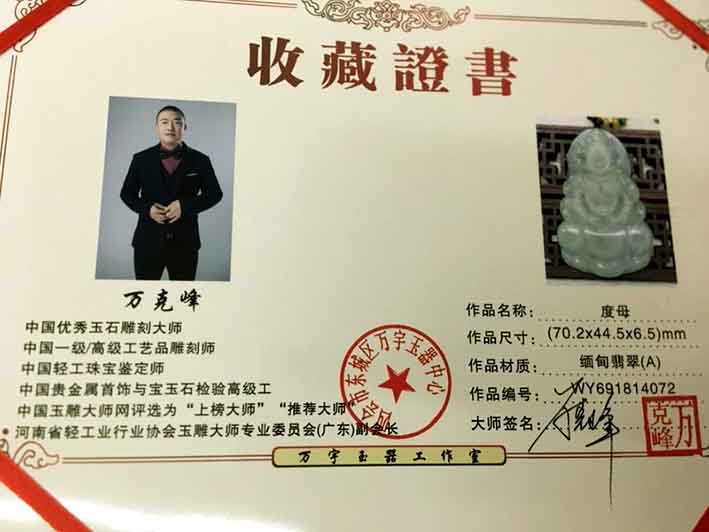 收藏證書
万克峰
中国优秀玉石雕刻大师
中国一级/高级工艺品雕刻师
中国轻工珠宝鉴定师
中国贵金属首饰与宝玉石检验高级工
中国玉雕大师网评选为“上榜大师”“推荐大师”
河南省轻工业行业协会玉雕大师专业委员会(广东)副会长
作品名称: 度母
作品尺寸: (70.2x44.5x6.5)mm
作品材质: 缅甸翡翠(A)
作品编号: WY691814072
大师签名:
万克峰
市东城区万宇玉器中心
万宇玉器工作室